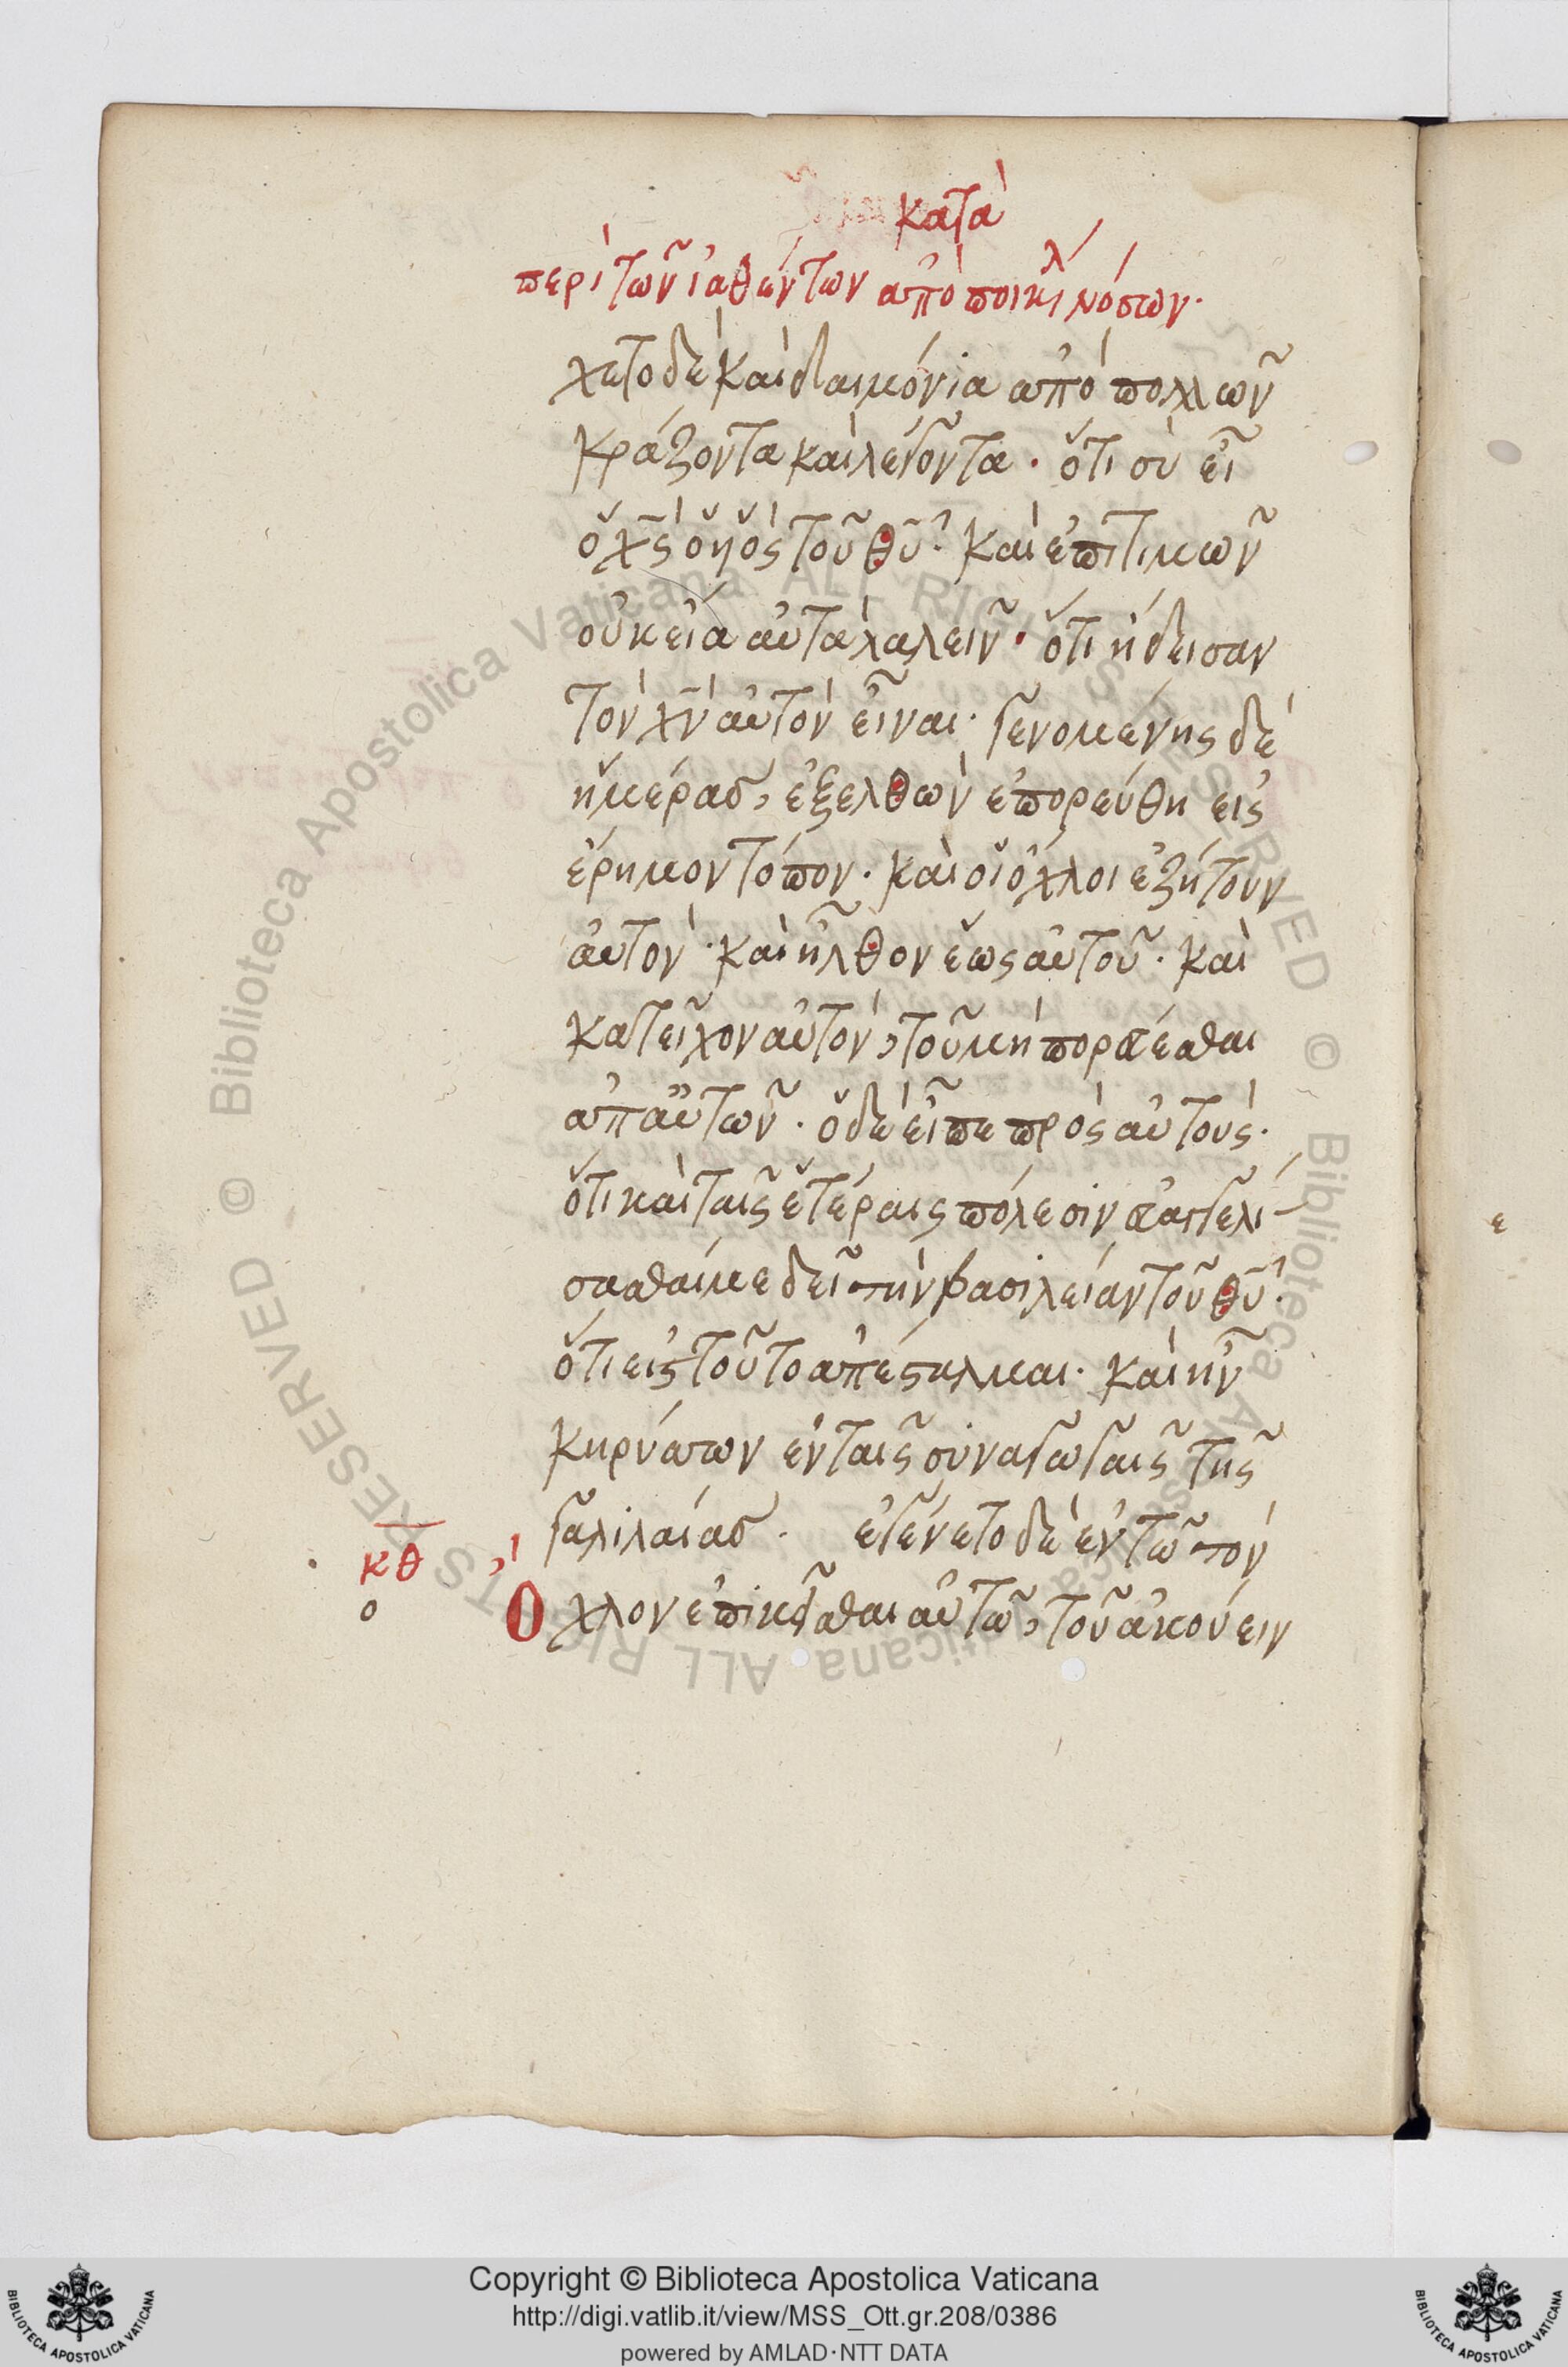 κατὰ
περὶ τῶν ἰαθέντων ἀπὸ ποικιλ νόσων·
χετο δὲ καὶ δαιμόνια ἀπὸ πολλῶν
κράζοντα καὶ λέγοντα· ὅτι σὺ εἶ
ὁ χς ὁ υἱὸς τοῦ θυ· καὶ ἐπιτιμῶν
οὐκ εἴα αὐτὰ λαλεῖν· ὅτι ᾔδεισαν
τὸν χν αὐτὸν εἶναι· γενομένης δὲ
ἡμέρας, ἐξελθὼν ἐπορεύθη εἰς
ἔρημον τόπον· καὶ οἱ ὄχλοι ἐζήτουν
αὐτὸν· καὶ ἦλθον ἕως αὐτοῦ· καὶ
κατεῖχον αὐτὸν, τοῦ μὴ πορεύεσθαι
ἀπ αὐτῶν· ὁ δὲ εἶπε πρὸς αὐτούς·
ὅτι καὶ ταῖς ἑτέραις πόλεσιν εὐαγγελί
σασθαί με δεῖ τὴν βασιλείαν τοῦ θυ·
ὅτι εἰς τοῦτο ἀπέσταλμαι· καὶ ἦν
κηρύσσων ἐν ταῖς συναγωγαῖς τῆς
γαλιλαίας· ἐγένετο δὲ ἐν τῶ τὸν
κθ
ο
Ὄχλον ἐπικεῖσθαι αὐτῶ, τοῦ ἀκούειν
ε
Copyright © Biblioteca Apostolica Vaticana
http://digi.vatlib.it/view/MSS_Ott.gr.208/0386
powered by AMLAD·NTT DATA